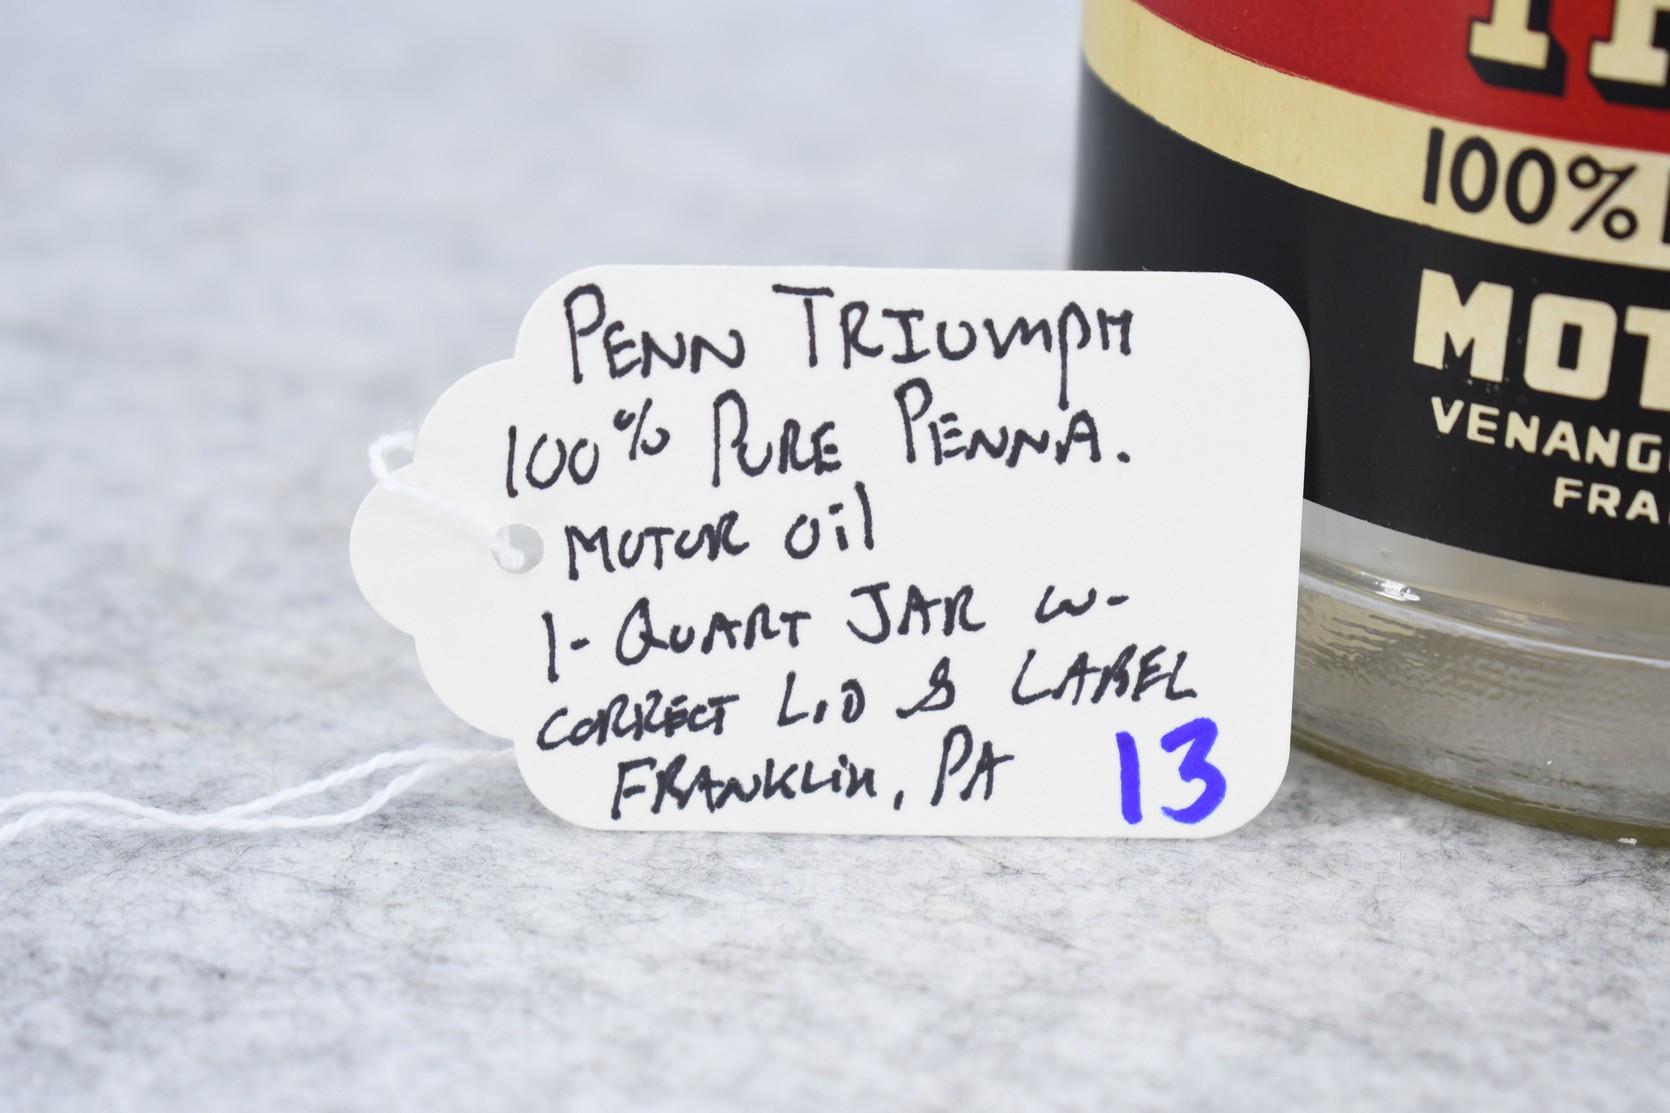 PENN TRIUMPH
100% PURE PENNA.
MOTOR Oil
1-QUART JAR w-
CORRECT LID & LABEL
FRANKLIN, PA 13
100%
MOT
VENANG
FRA